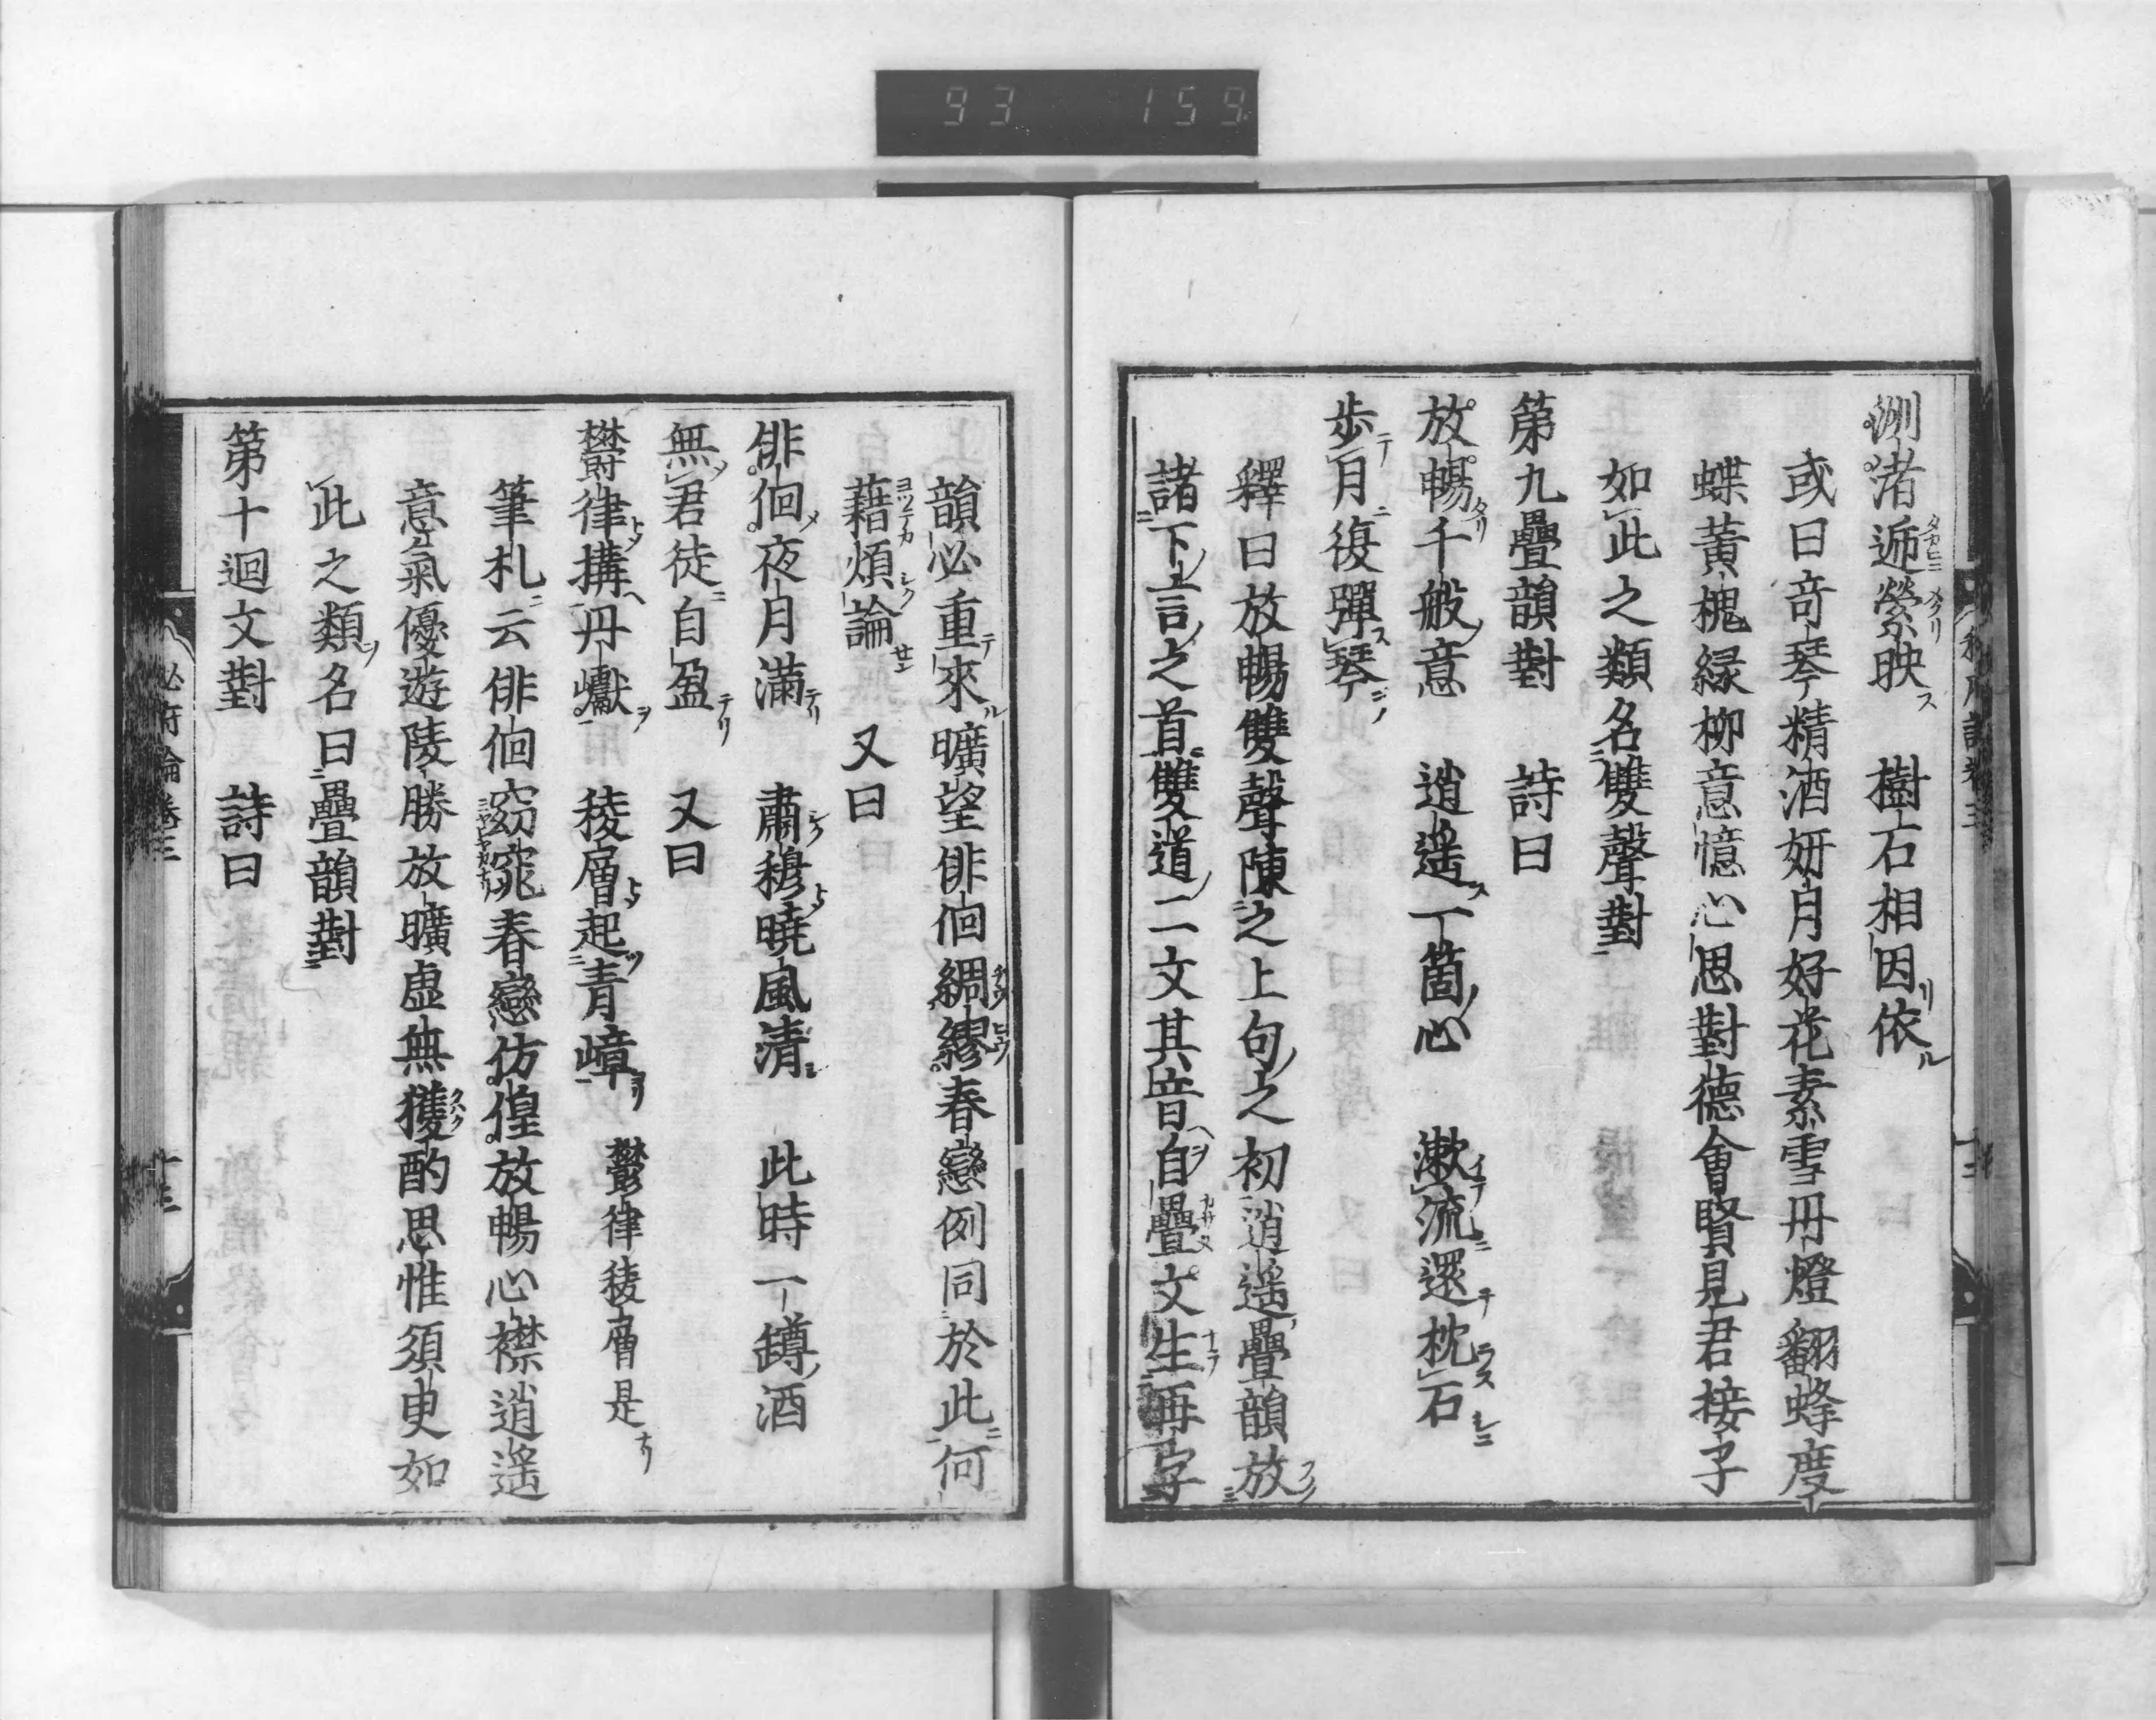 93 159
洌渚逓縈映　樹石相因依
或曰竒琴精酒妍月好花素雪丹燈翻蜂度
蝶黃槐緑栁意憶心思對德會賢見君接子
如此之類名雙聲對
第九疊韻對　詩曰
放暢千般意　逍遙一箇心　漱流還枕石
歩月復彈琴
釋曰放暢雙聲陳之上句之初逍遥疊韻放
諸下言之首雙道二文其音自疊文生再字
韻必重來曠望俳佪綢繆春戀例同於此何
藉煩論　又曰
俳佪夜月滿　肅穆曉風清　此時一罇酒
無君徒自盈　又曰
欝律搆丹巘　稜層起青嶂　欝律稜層是
筆札云俳佪窈窕春戀彷徨放暢心襟逍遥
意氣優遊陵勝放曠虛無獲酌思惟須臾如
此之類名曰疊韻對
第十迴文對　詩曰